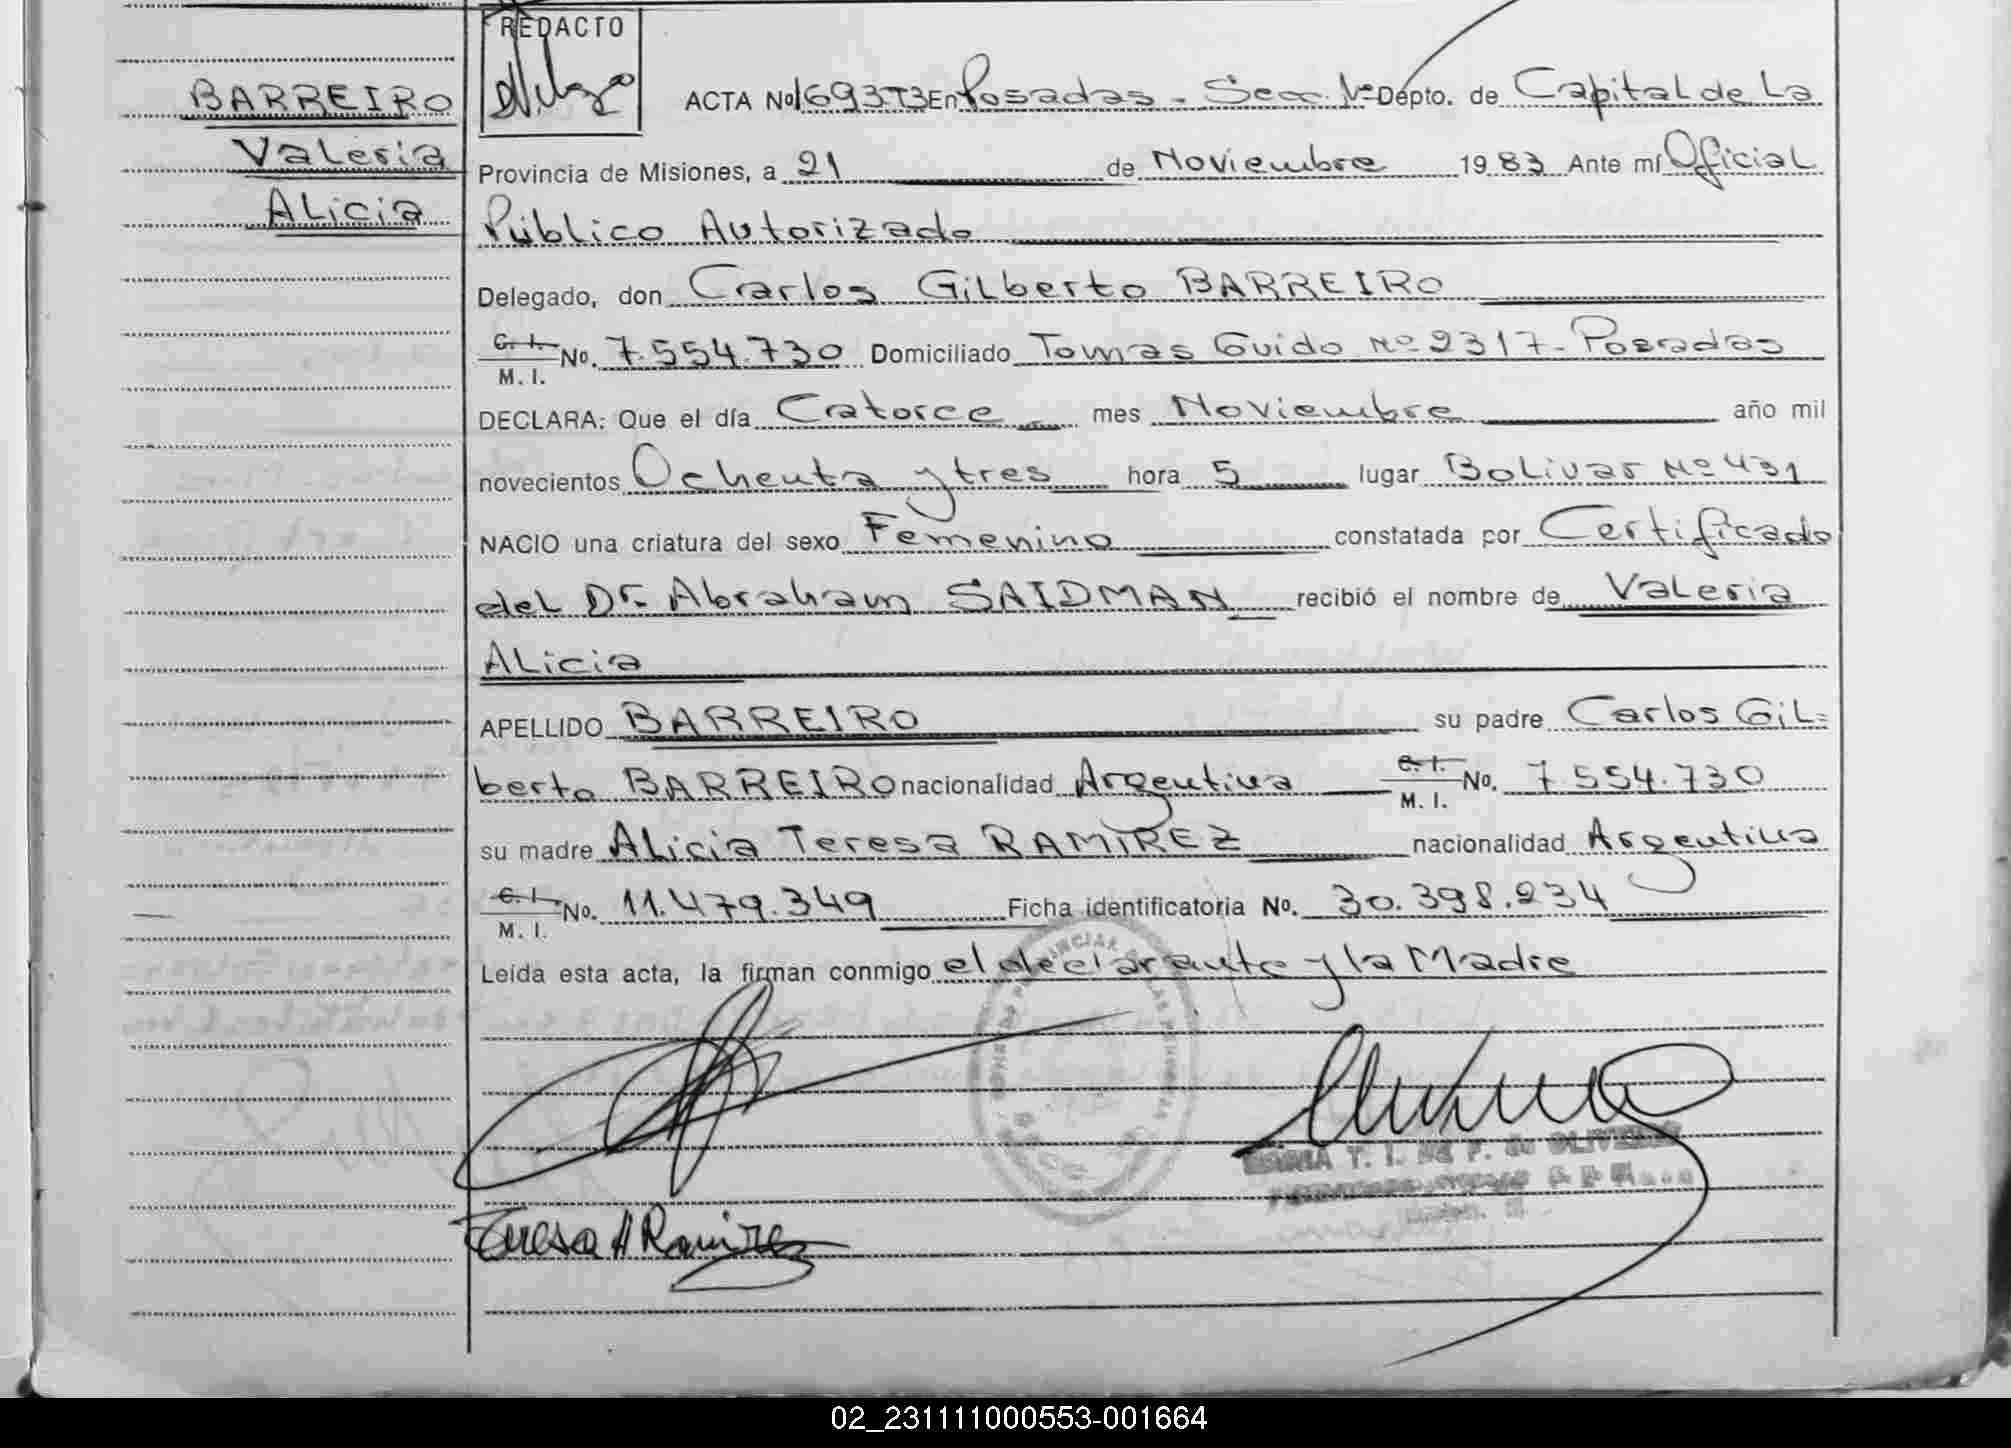 REDACTO
BARREIRO
Valeria
Alicia
ACTA No 1693T3 En Posadas - Secc. 1º Depto. de Capital de La
Provincia de Misiones, a 21 de Noviembre 1983 Ante mí Oficial
Público Autorizado
Delegado, don Carlos Gilberto BARREIRO
C. I.
M. I. No. 7.554.730 Domiciliado Tomas Guido Nº 2317 - Posadas
DECLARA: Que el día Catorce mes Noviembre año mil
novecientos Ochenta y tres hora 5 lugar Bolivar Nº 431
NACIO una criatura del sexo Femenino constatada por Certificado
del Dr. Abraham SAIDMAN recibió el nombre de Valeria
Alicia
APELLIDO BARREIRO su padre Carlos Gil=
berto BARREIRO nacionalidad Argentina C. I.
M. I. No. 7.554.730
su madre Alicia Teresa RAMIREZ nacionalidad Argentina
C. I.
M. I. No. 11.479.349 Ficha identificatoria No. 30.398.234
Leída esta acta, la firman conmigo el declarante y la Madre
Teresa A Ramirez
02_231111000553-001664